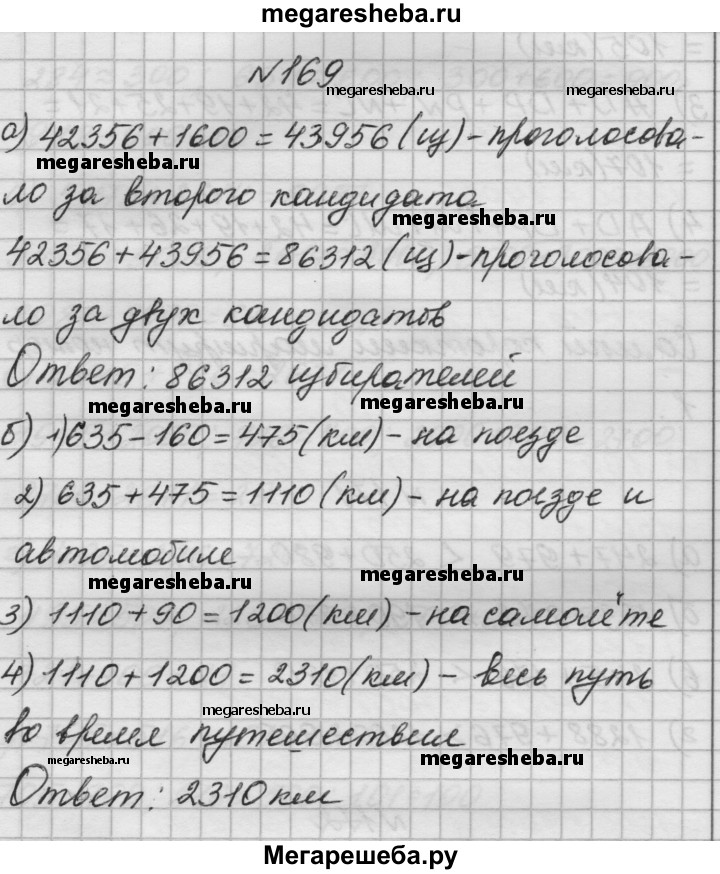 megaresheba.ru
№169
megaresheba.ru megaresheba.ru
а) 42356+1600=43956(щ)-проголосова-
megaresheba.ru
ло за второго кандидата
megaresheba.ru
42356+43956=86312(щ)-проголосова-
ло за двух кандидатов
Ответ: 86312 избирателей
megaresheba.ru megaresheba.ru
б) 1)635-160=475(км)-на поезде
2) 635+475=1110(км)-на поезде и
автомобиле
megaresheba.ru megaresheba.ru
3) 1110+90=1200(км)-на самолёте
4) 1110+1200=2310(км)-весь путь
megaresheba.ru
во время путешествия
megaresheba.ru megaresheba.ru
Ответ: 2310км
Мегарешеба.ру